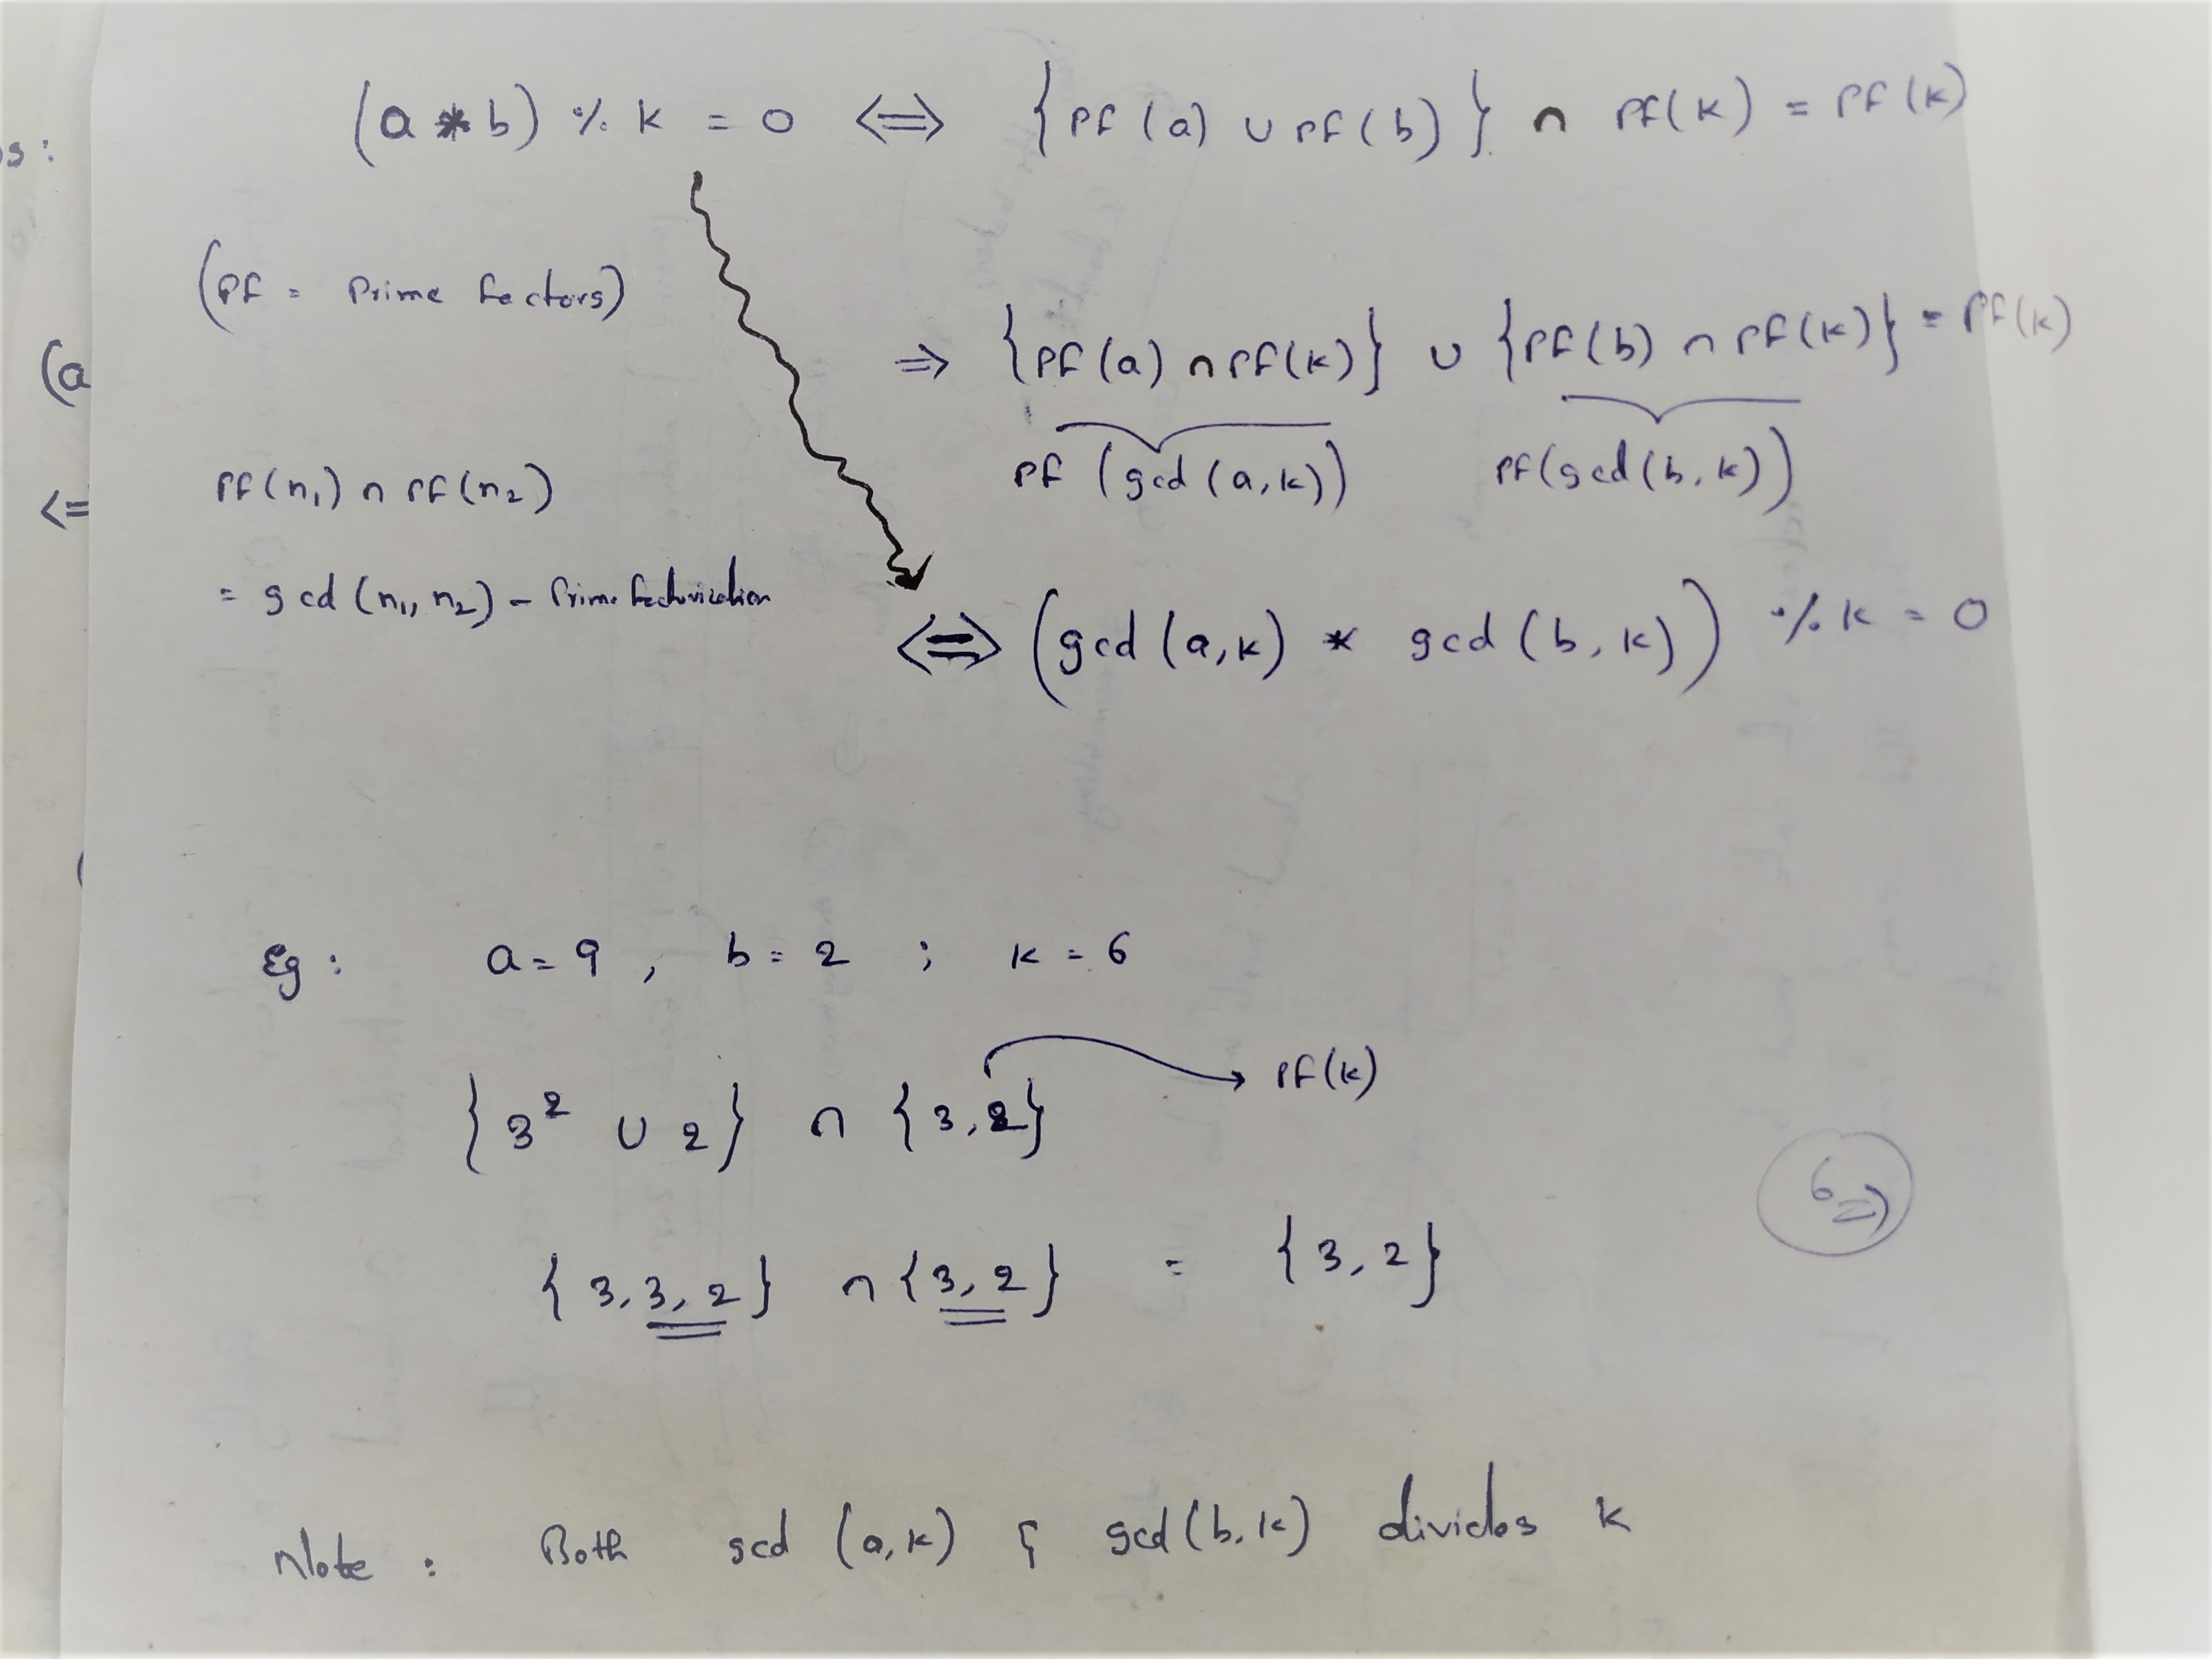 (a * b) % k = 0 <=> {PF (a) ∪ PF (b)} ∩ PF(k) = PF(k)
os:
(PF = Prime factors)
=> {PF (a) ∩ PF(k)} ∪ {PF(b) ∩ PF(k)} = PF(k)
(a
PF (gcd (a,k)) PF(gcd (b, k))
PF(n₁) ∩ PF(n₂)
<=
= gcd (n₁, n₂) - Prime factorization
<=> (gcd (a,k) * gcd (b, k)) % k = 0
(
Eg : a = 9 , b = 2 ; k = 6
PF(k)
{3² ∪ 2} ∩ {3,2}
6 =>
{3,3,2} ∩ {3,2} = {3,2}
Note : Both gcd (a,k) & gcd (b,k) divides k